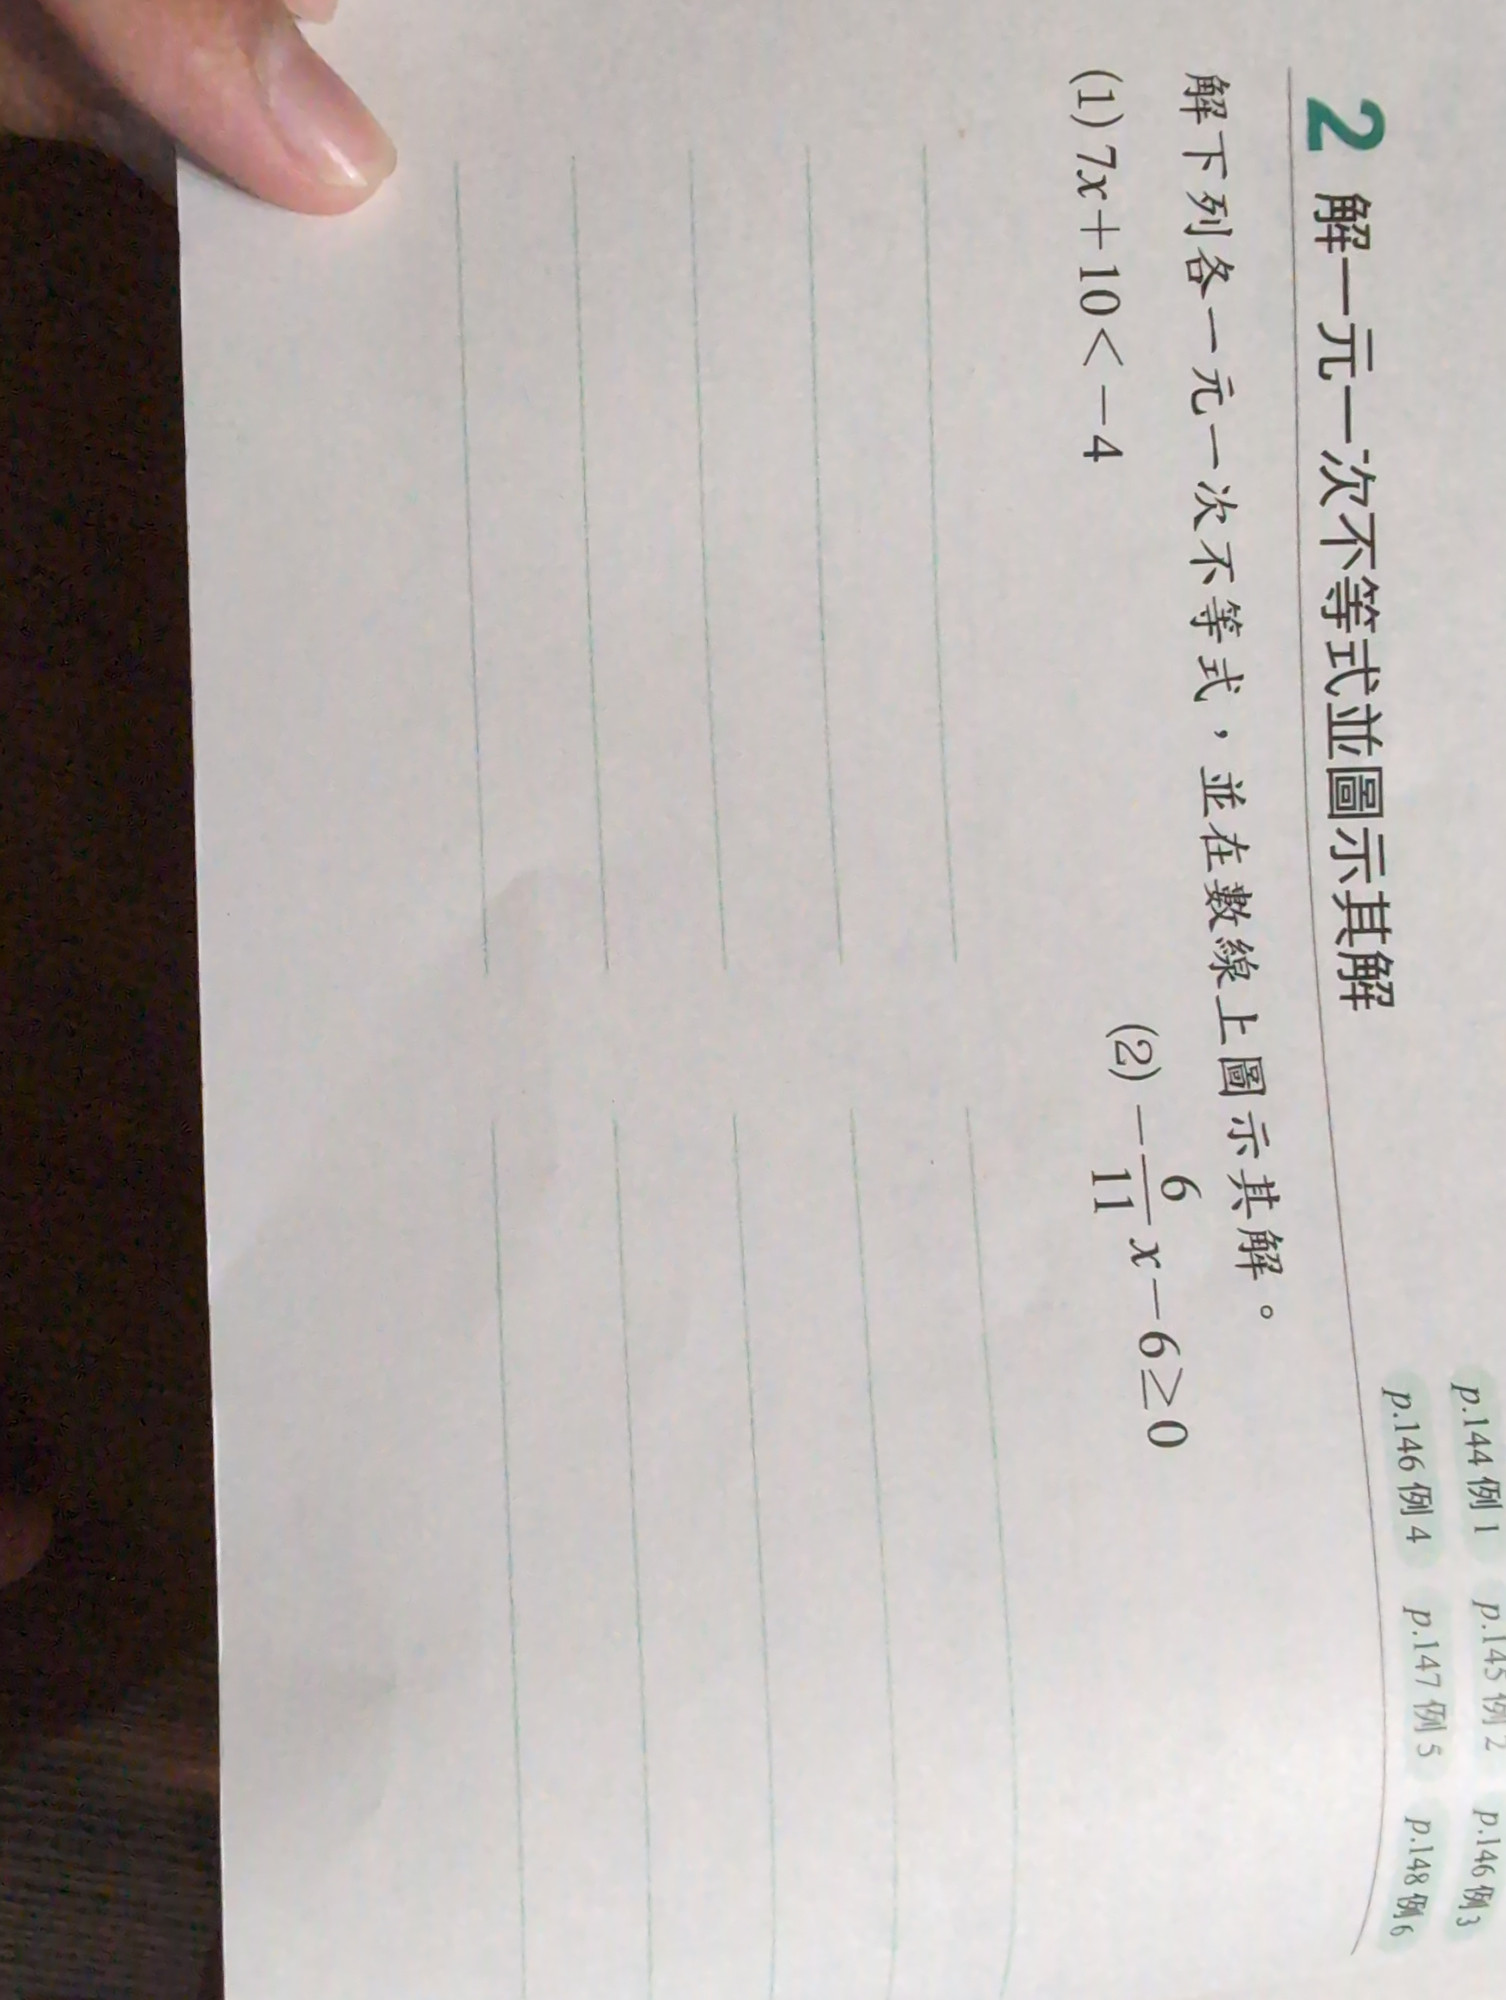 p.144 例 1 p.145 例 2 p.146 例 3
2 解一元一次不等式並圖示其解 p.146 例 4 p.147 例 5 p.148 例 6
解下列各一元一次不等式，並在數線上圖示其解。
(1) 7x＋10＜－4 (2) －6/11 x－6≥0